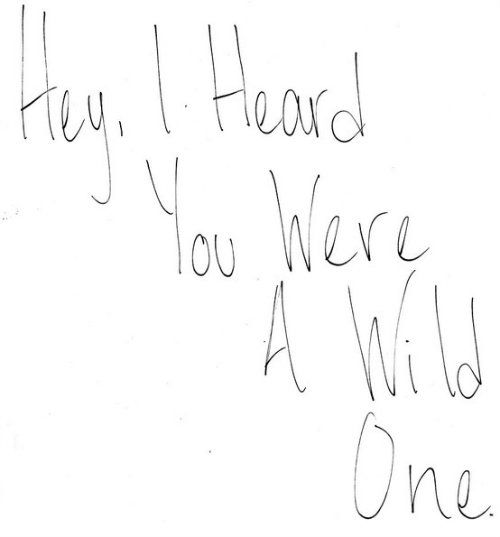 Hey, I Heard
You Were
A Wild
One.